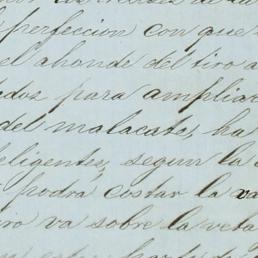 perfeccion con que
el ahonde del tiro a
para ampliar
del malacate, ha
segun la
podrá costar la va
va sobre la veta